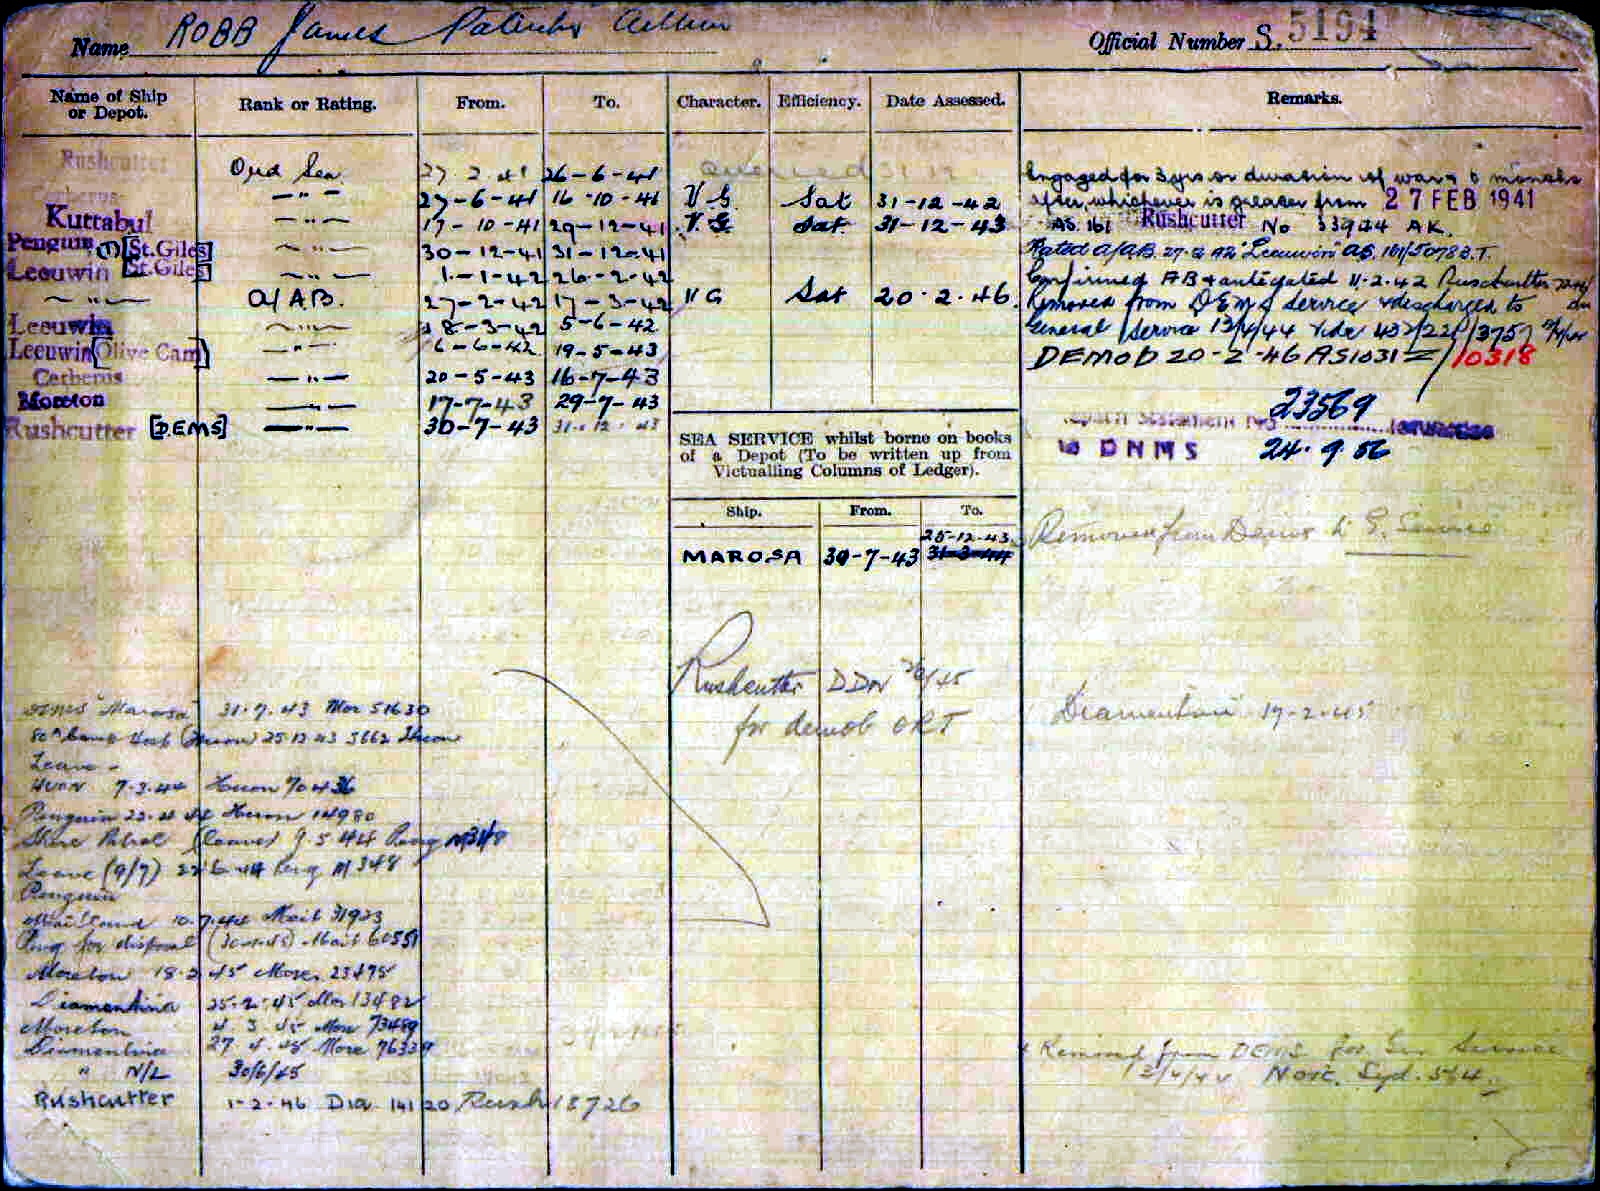 Name ROBB James Patrick Arthur
Official Number S. 5194
Name of Ship or Depot. Rank or Rating. From. To. Character. Efficiency. Date Assessed. Remarks.
Rushcutter Ord Sea 27 2 41 26-6-41
Cerberus -"- 27-6-41 16-10-41 V G Sat 31-12-42
Kuttabul -"- 17-10-41 29-12-41 V.G. Sat. 31-12-43
Penguin (1) [St. Giles] -"- 30-12-41 31-12-41
Leeuwin [St. Giles] -"- 1-1-42 26-2-42
-"- A/AB. 27-2-42 17-3-42 V G Sat 20.2.46.
Leeuwin -"- 18-3-42 5-6-42
Leeuwin [Olive Cam] -"- 6-6-42 19-5-43
Cerberus -"- 20-5-43 16-7-43
Moreton -"- 17-7-43 29-7-43
Rushcutter [DEMS] -"- 30-7-43 31.12.43
Engaged for 3 yrs or duration of war & 6 months
after, whichever is greater from 27 FEB 1941
AS.161 Rushcutter No 33944 AK.
Rated A/AB. 27.2.42 "Leeuwin" AS. 161/5078 B.T.
Confirmed AB & antedated 11-2-42 Rushcutter
Removed from DEMS Service & discharged to
General Service 13/4/44 vide 432/221/3757
DEMOB 20-2-46 AS1031 10318
23569
DNMS 24.9.56
SEA SERVICE whilst borne on books
of a Depot (To be written up from
Victualling Columns of Ledger).
Ship. From. To.
25-12-43
MAROSA 30-7-43 31-3-44
Removed from Dems to G. Service
Rushcutter
for demob
Diamentina 19-2-45
DEMS Marosa 31.7.43 Mor 51630
(Huon) 25 12 43 3662 Huon
Leave -
HUON 7.3.44 Huon 70436
Penguin 22.4.44 Huon 14980
Shore Patrol (Leave) 9.5.44 Peng
Leave (9/7) 22 6 44 Peng M 348
Penguin
Maitland 10.7.44 Mait 31923
Peng for disposal (30-1-45) Mait 60551
Moreton 18.2.45 More. 23495
Diamentina 25.2.45 Mor 13482
Moreton 4.3.45 More 73489
Diamentina 27.4.45 More 76339
" N/L 30/6/45
Rushcutter 1-2-46 Dia 14120 Rush 18726
Removed from DEMS for Gen Service